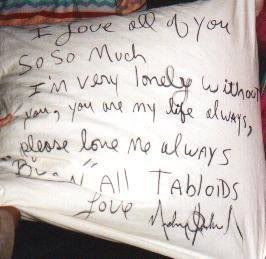 I love all of you
So So Much
I'm very lonely without
you, you are my life always,
please love me always
"Bu N" All TABloiDS
Love